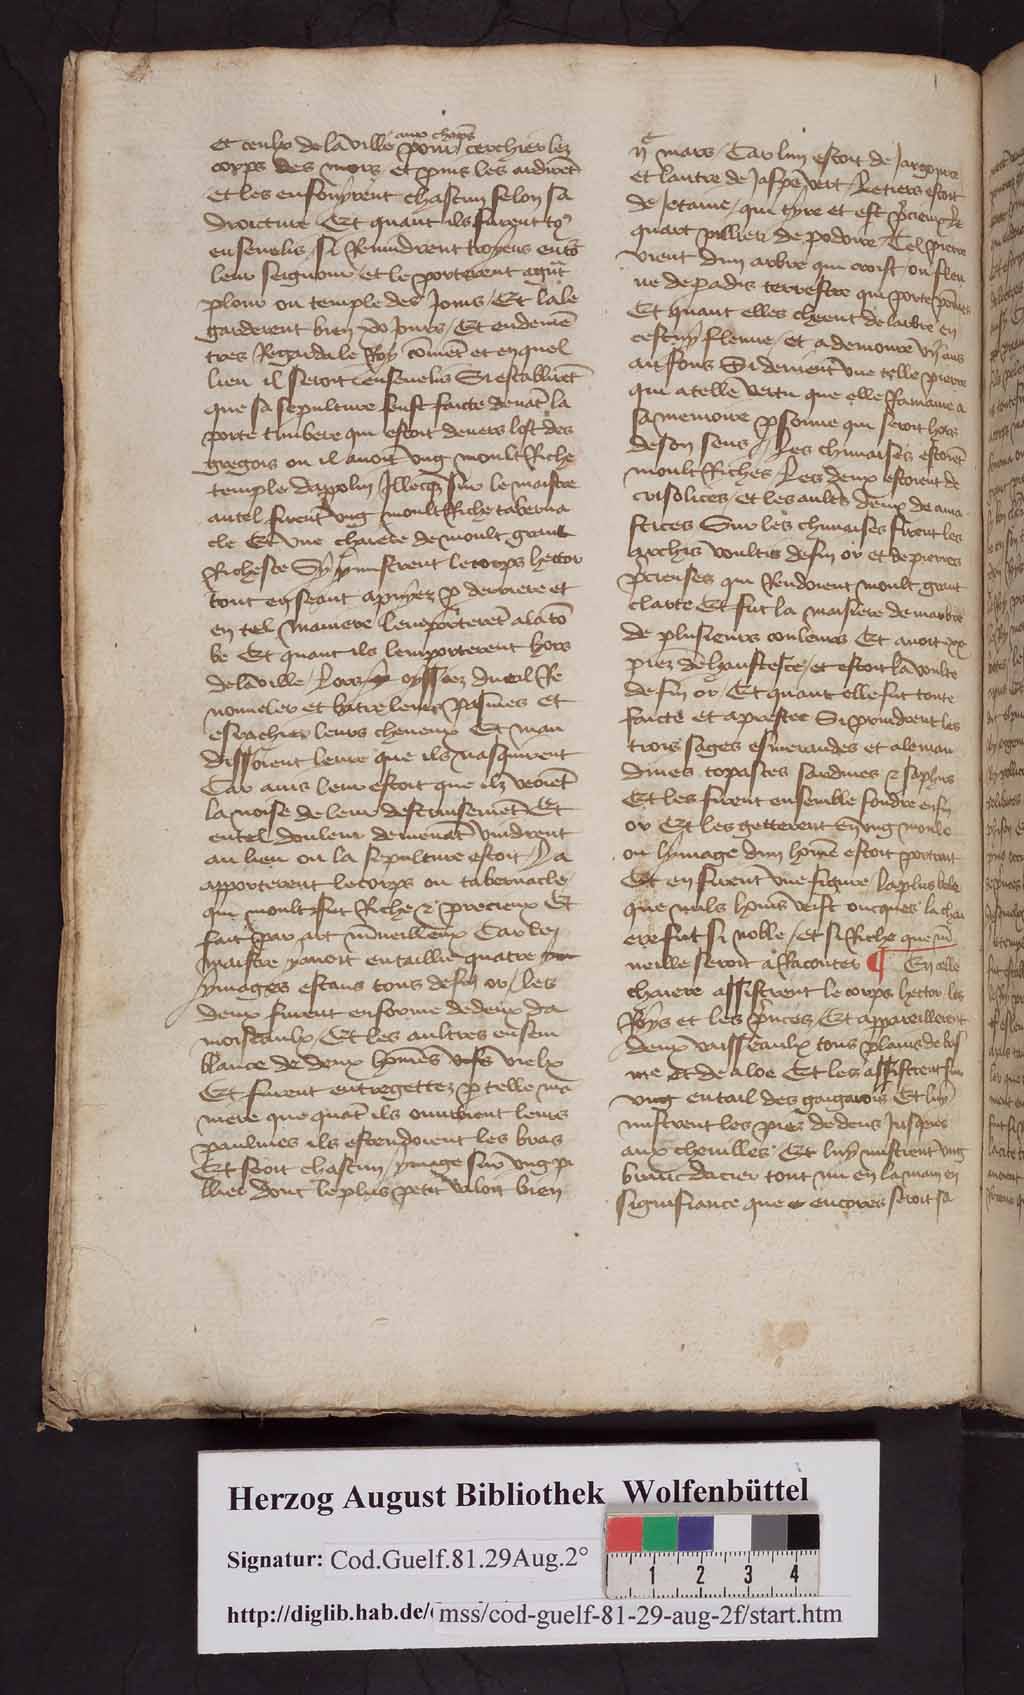 et ceulx de la ville pour aux champs cerchier les
corps des mors et puis les ardirent
et les ensouyrent chascun selon sa
droicture Et quant ils furent to9
ensevelis si revindrent troyens entor
leur seigneur et le porterent a grant
plour ou temple des Jouis Et la le
garderent bien Jours Et endemen
tres Regarda le Roy coment et en quel
lieu il seroit ensevelis Si establirent
que sa sepulture feust faicte devant la
porte timbree qui estoit devers lost des
gregois ou il avoit ung moult Riche
temple dappolin Illecqs sur le maistre
autel firent ung moult Riche taberna
cle Et une chaiere de moult grant
Richesce Sy y mistrent le corps hector
tout en seant apuyez p derriere et
en tel maniere lemporterent a la tom
be Et quant ils lemporterent hors
de la ville Lors oyssiez dueil Re
nouveler et batre leurs pasmes et
esrachier leurs cheveux Et mau
dissoient leure que ils nasquirent
Car avis leur estoit que ilz veoient
la noise de leur destruisement Et
en tel douleur demenant vindrent
au lieu ou la sepulture estoit La
apporterent le corps ou tabernacle
qui moult fut Riche et precieux Et
fait par art merveilleux Car les
maistre y avoit entaillie quatre
ymages estans tous de fin or les
deux furent en forme de deux da
moiseaulx Et les aultres en sem
blance de deux homes vielx
Et furent entregettez p telle ma
niere que quant ils ouvroient leurs
paulmes ils estendoient les bras
Et seoit chascun ymage sur ung pi
llier dont le plus petit valoit bien
mars Car lun estoit de Jargonce
et lautre de Jaspe vert Le tiers estoit
de Jetaine qui tyre et est precieux Le
quart pillier de podoire Tel pierre
vient dun arbre qui croist ou fleu
ve de padis terrestre qui porte pomes
Et quant elles cheent de larbre en
cestuy fleuve et a demoure vij ans
au fons Si devient une telle pierre
qui a telle vertu que elle Ramaine a
sa memoire psonne qui seroit hors
de son sens Les chimaises estoient
moult Riches Les deux estoient de
crisolices et les aults deux de ama
stices Sur les chimaises furent les
archis voultis de fin or et de pierres
precieuses qui Rendoient moult grant
clarte Et fut la maisiere de marbre
de plusieurs couleurs Et avoit xx
piez de haultesce et estoit la voulte
de fin or Et quant elle fut toute
faicte et aprestee Si prindrent les
trois sages esmeraudes et aleman
dines topasces sardines et saphirs
Et les firent ensemble fondre en fin
or Et les getterent en ung moule
ou lymage dun home estoit portrait
Et en firent une figure la plus bele
que nuls homs veist oncques la chai
ere fut si noble et si Riche que mer
veille seroit a Raconter ¶ En celle
chaiere assistrent le corps hector les
Roys et les princes Et appareillerent
deux vaisseaulx tous plains de bas
me et de aloe Et les assistrent sur
ung entail des gargarois Et luy
mistrent les piez dedens Jusques
aux chevilles Et luy mistrent ung
branc dacier tout nu en la main en
signifiance que encores seroit sa
Herzog August Bibliothek Wolfenbüttel
Signatur: Cod.Guelf.81.29Aug.2°
1 2 3 4
http://diglib.hab.de/mss/cod-guelf-81-29-aug-2f/start.htm